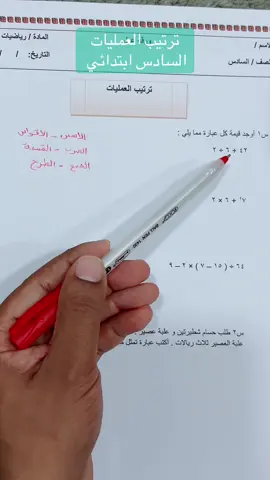 ترتيب العمليات
السادس ابتدائي
المادة / رياضيات
الصف / السادس
التاريخ: / /
ترتيب العمليات
الأسس - الأقواس
الضرب - القسمة
الجمع - الطرح
س١ أوجد قيمة كل عبارة مما يلي :
٤٢ ÷ ٦ + ٢
٢ × ٦ +
٦٤ ÷ ( ١٥ – ٧ ) × ٢ – ٩
س٢ طلب حسام شطيرتين و علبة عصير
علبة العصير ثلاث ريالات . أكتب عبارة تمثل